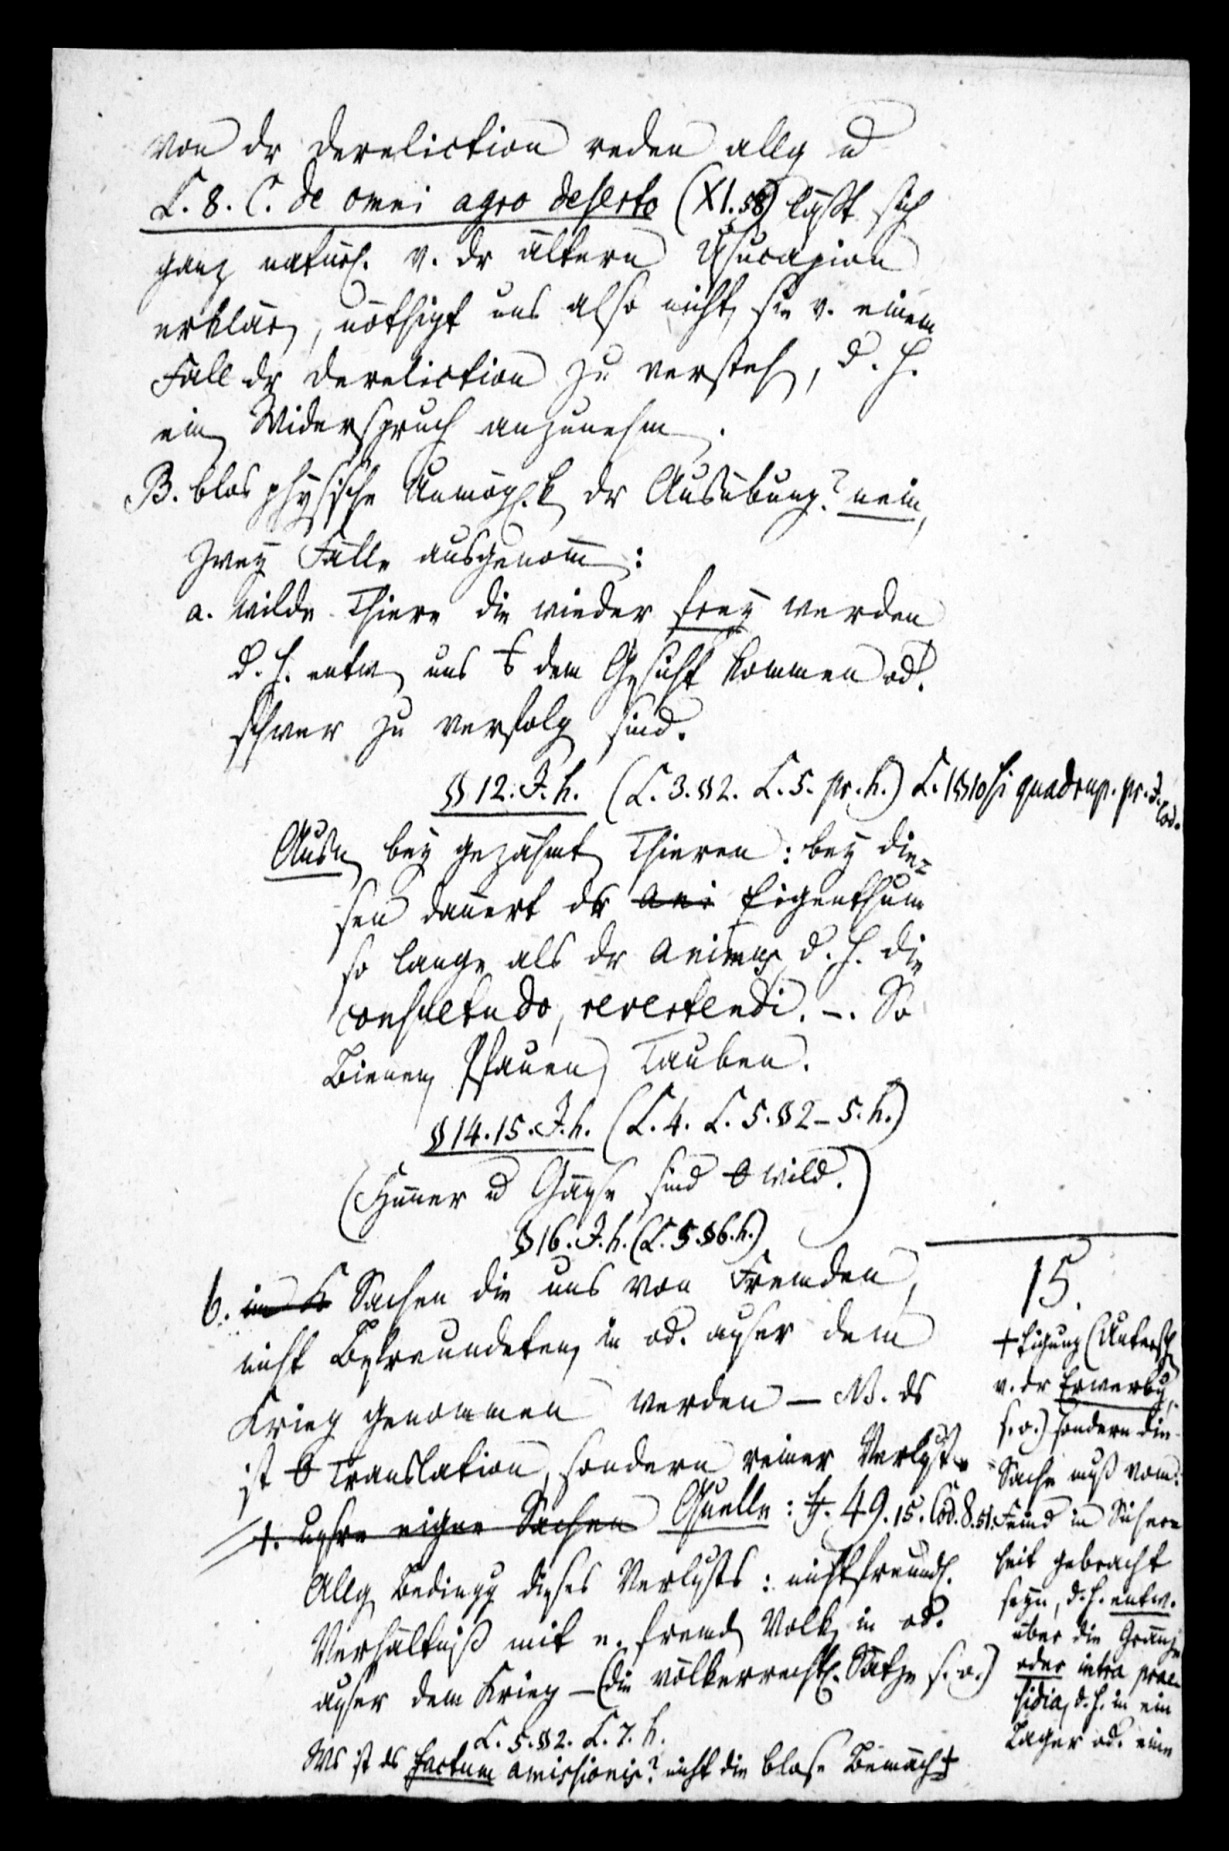 von dr Dereliction reden allg u
L. 8. C. de omni agro deserto (XI. 58) läßt sich
ganz natürl. v. dr ältern Usucapion
erklär, nöthigt uns also nicht, sie v. einem
Fall dr Dereliction zu versteh, d. h.
ein Widerspruch anzunehm.
B. blos physische Unmögl.k dr Ausübung? nein,
zwey Fälle ausgenom:
a. wilde Thiere die wieder frey werden
d. h. entw uns dem Gesicht kommen od.
schwer zu verfolg sind.
§ 12. J. h. (L. 3. § 2. L. 5. pr. h.) L. 1 § 10 si quadrup. pr.
Ausn bey gezähmt Thieren: bey die-
sen dauert ds ani Eigenthum
so lange als dr animus, d. h. die
consuetudo, revertendi. –. So
Bienen, Pfauen, Tauben.
§ 14. 15. J. h. (L. 4. L. 5. § 2 – 5. h.)
(Hüner u Gänse sind wild.)
§ 16. J. h. (L. 5. § 6. h.)
b. Sachen die uns von Fremden,
nicht Befreundeten, in od. auser dem
Krieg genommen werden – NB. ds
ist Translation, sondern reiner Verlust.
1. unsre eigne Sachen Quelle: 49. 15. Cod. 8. 51.
Allg Beding dieses Verlusts: nicht freundl.
Verhältniß mit e. fremd Volk, in od.
auser dem Krieg – (die völkerrechtl. Sätze s. o.)
L. 5. § 2. L. 7. h.
Ws ist ds factum amissionis? nicht die blose Bemäch+
15.
+ tigung (Untersch
v. dr Erwerbg,
s. o.) sondern die
Sache muß vom
Feind in Sicher-
heit gebracht
seyn, d. h. entw.
über die Gränze
oder intra prae-
sidia, d. h. in ein
Lager od. eine